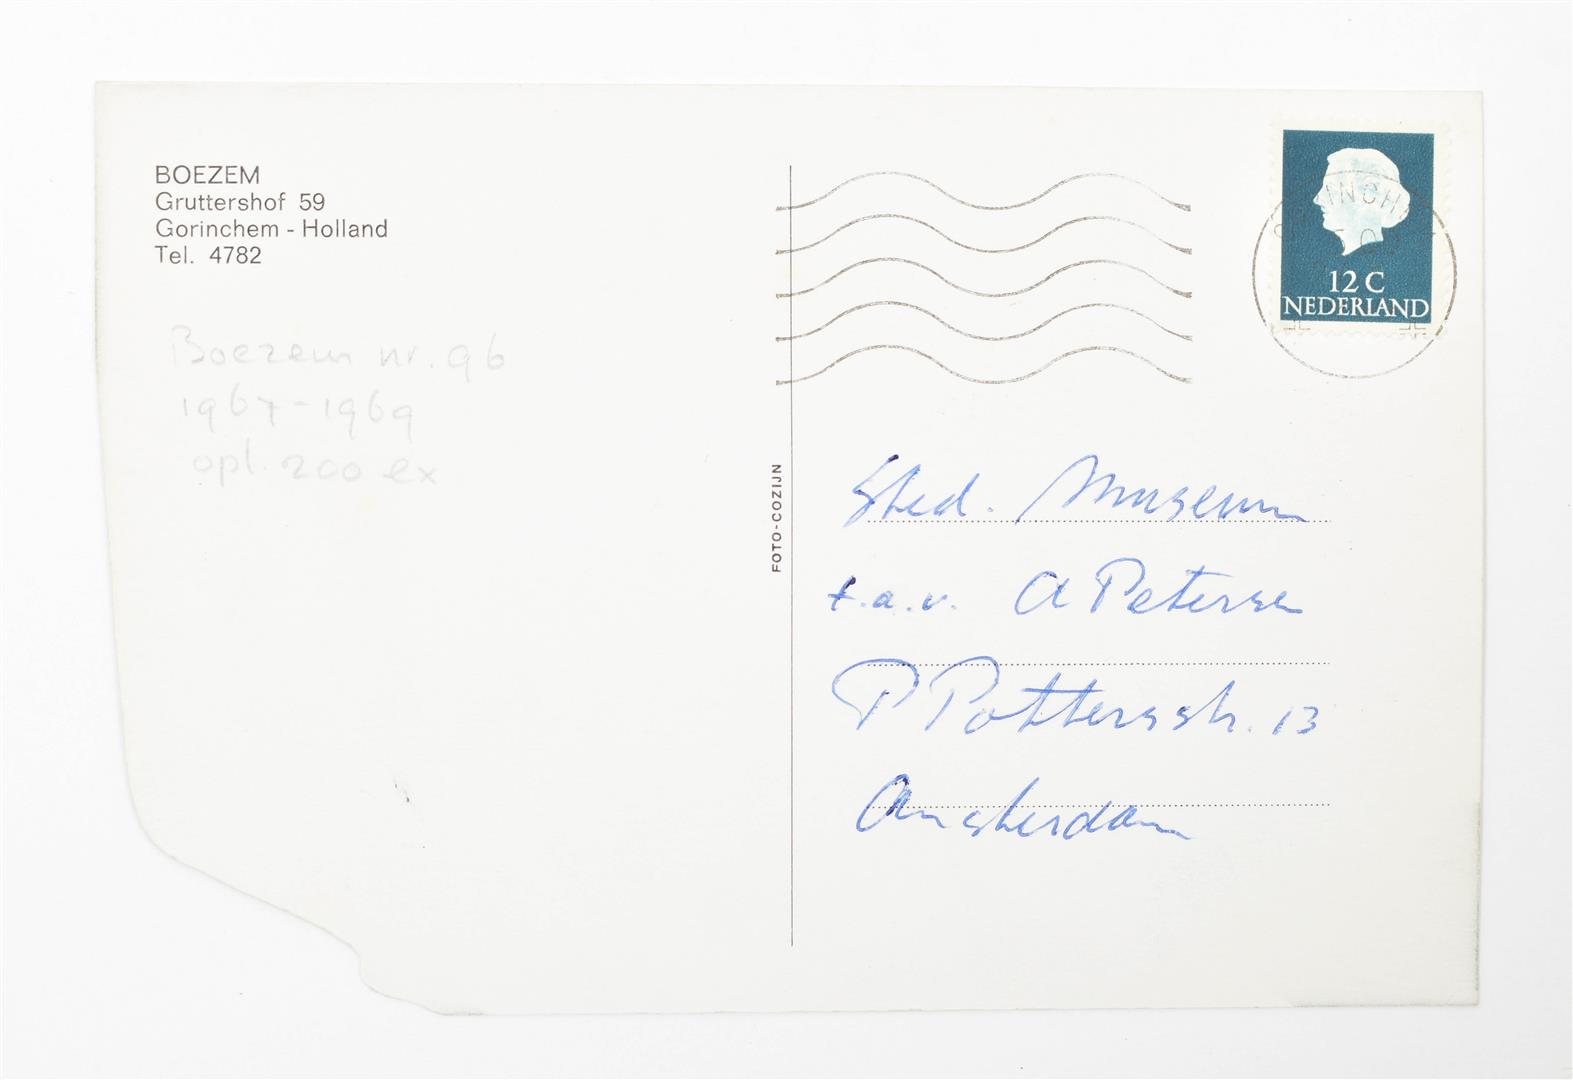 BOEZEM
Gruttershof 59
Gorinchem - Holland
Tel. 4782
Boezem nr. 96
1967-1969
opl. 200 ex
FOTO-COZIJN
12 C
NEDERLAND
Sted. Museum
t.a.v. A Petersen
P Pottersstr. 13
Amsterdam